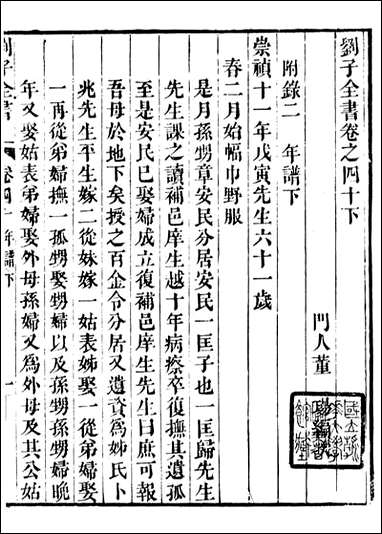 劉子全書卷之四十下
門人董
附錄二　年譜下
崇禎十一年戊寅先生六十一歲
春二月始幅巾野服
是月孫甥章安民分居安民一匡子也一匡歸先生
先生課之讀補邑庠生越十年病瘵卒復撫其遺孤
至是安民已娶婦成立復補邑庠生先生曰庶可報
吾母於地下矣授之百金令分居又遺貲為姊氏卜
兆先生平生嫁二從妹嫁一姑表姊娶一從弟婦娶
一再從弟婦撫一孤甥娶甥婦以及孫甥孫甥婦晚
年又娶姑表弟婦娶外母孫婦又為外母及其公姑
劉子全書　卷四十　年譜下　一